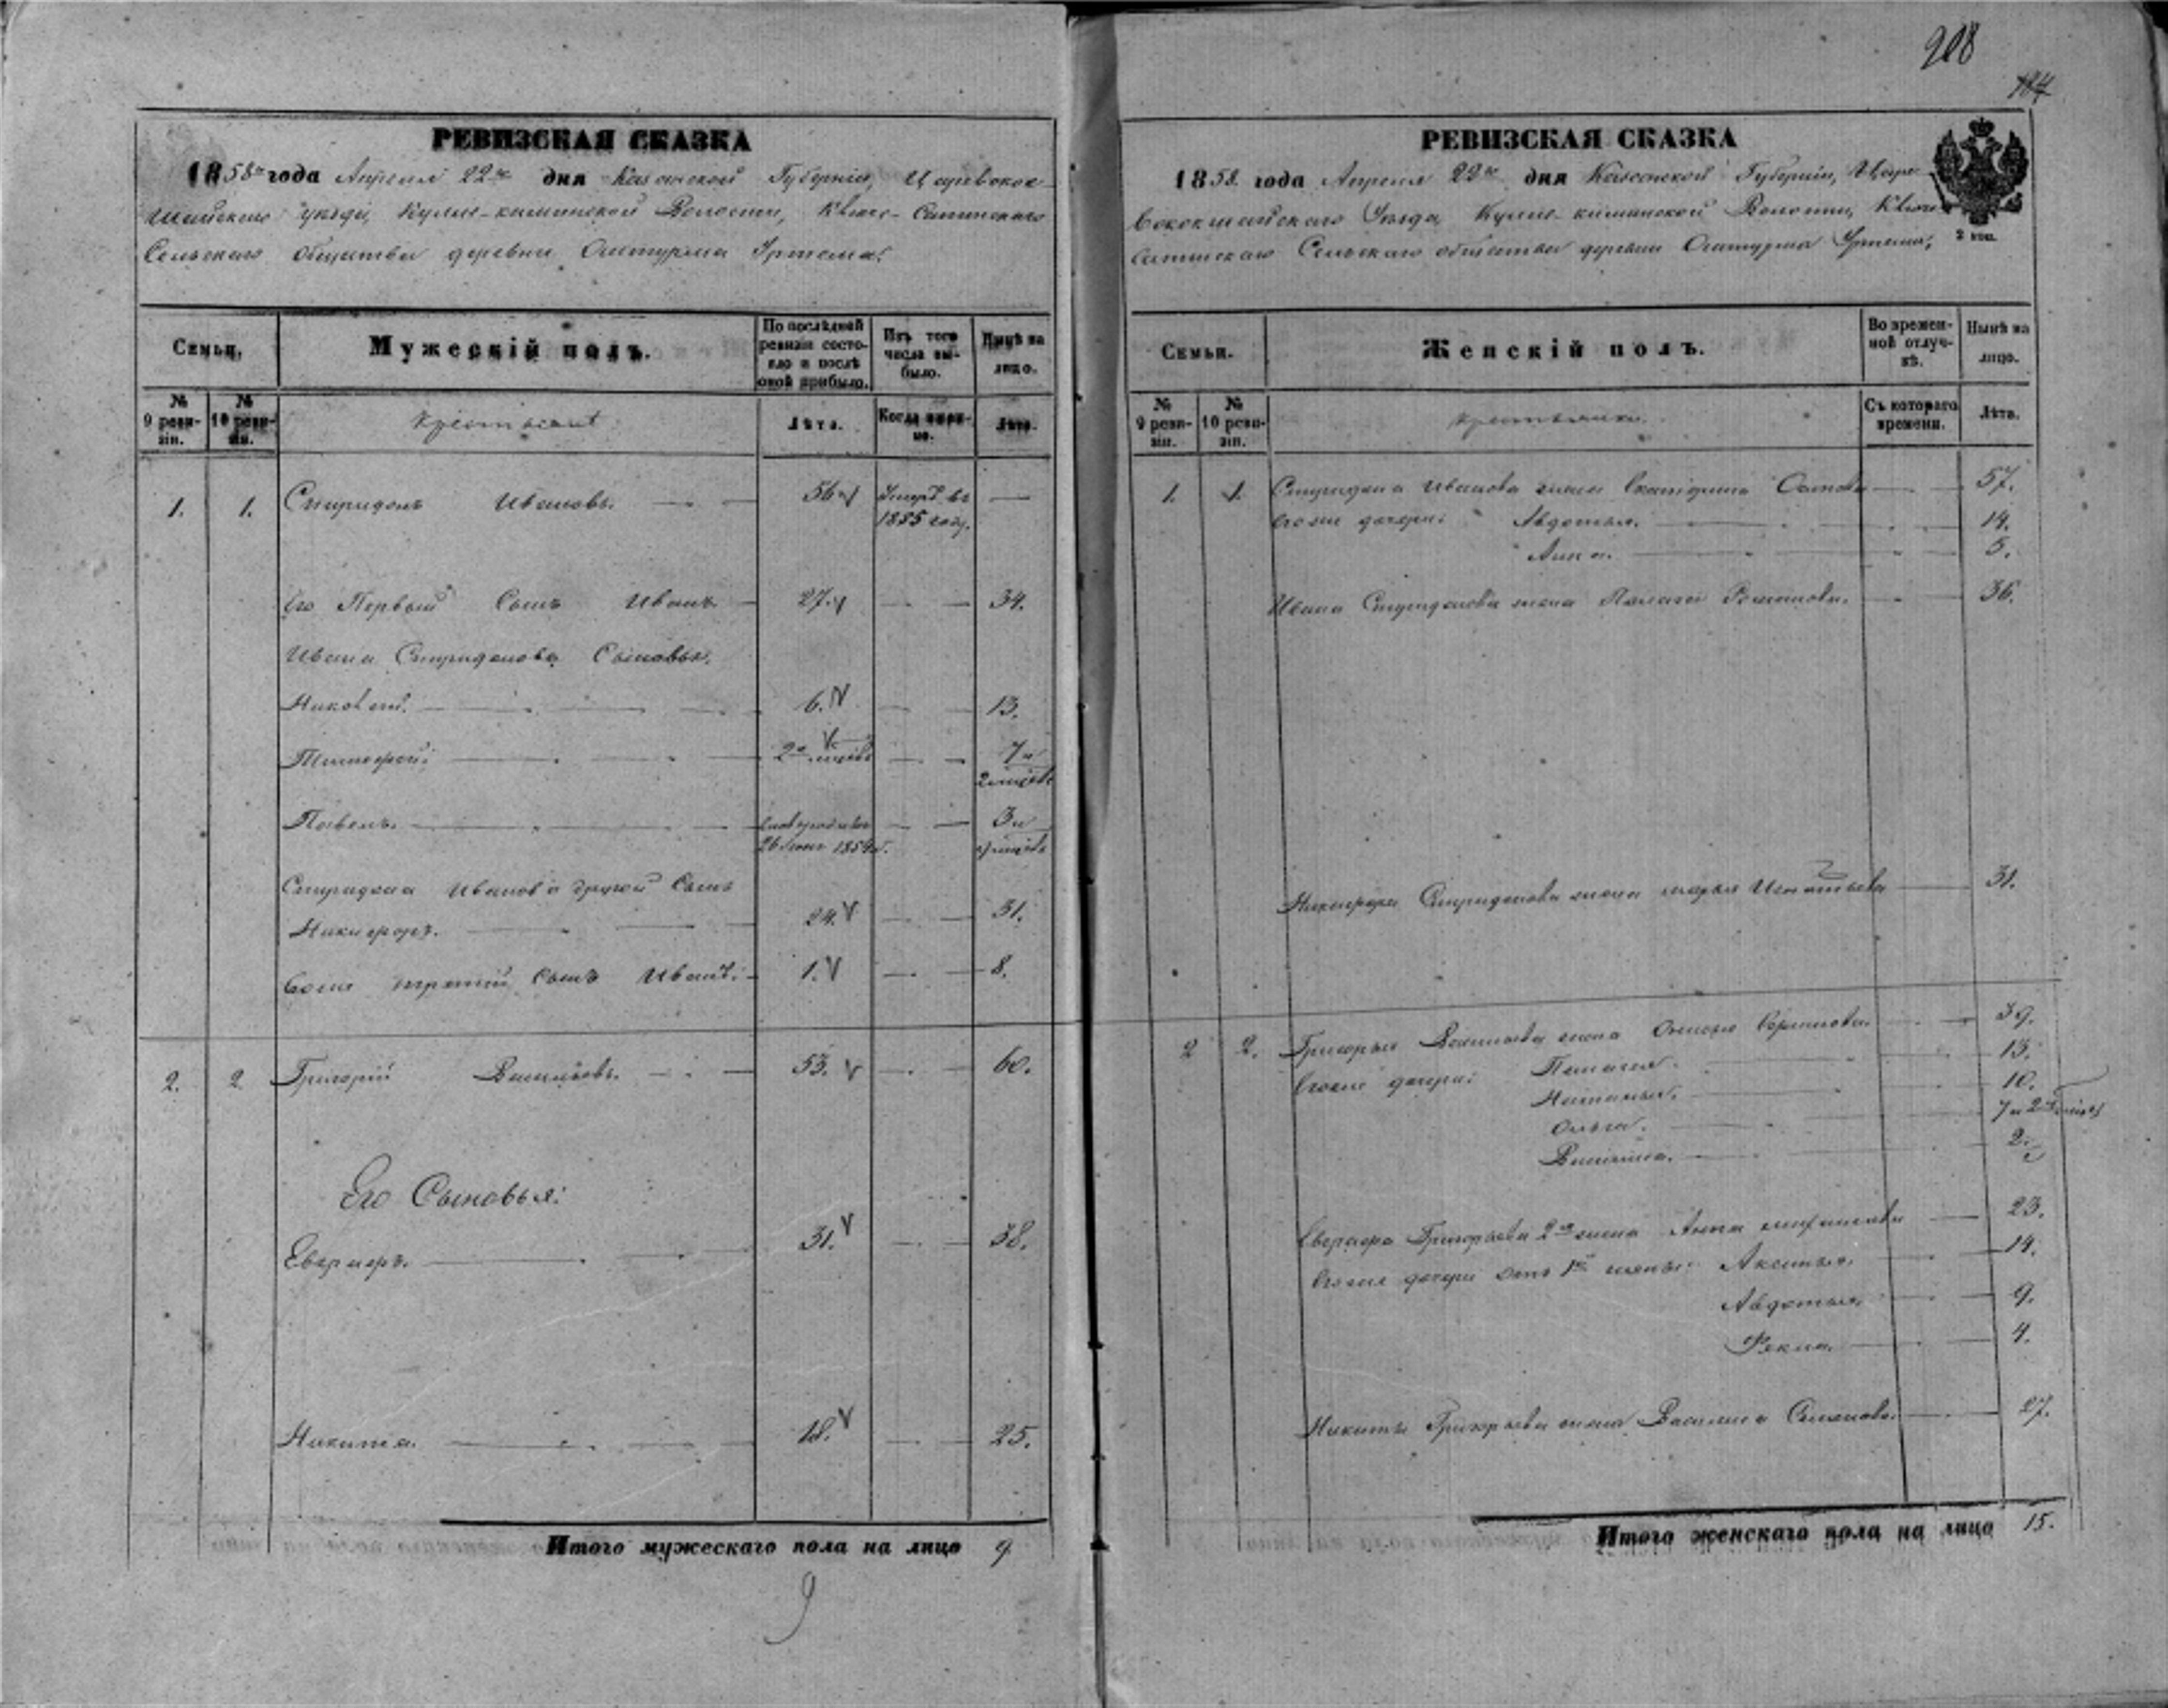 208
184
РЕВИЗСКАЯ СКАЗКА
1858 года Апреля 22го дня Казанской Губерніи, Царевокок-
шайскаго уѣзда, Кулле-киминской Волости, Ключе- Сапинскаго
Сельскаго общества деревни
Семьи.
Мужескій полъ.
По послѣдней ревизіи состо- яло и послѣ оной прибыло.
Изъ того числа вы- было.
Нынѣ на лицо.
№ 9 реви- зіи.
№ 10 реви- зіи.
Крестьяне
Лѣта.
Когда имен- но.
Лѣта.
1. 1. Спиридонъ Ивановъ. 56 Умеръ въ 1855 году.
Его Первый Сынъ Иванъ 27. 34.
Ивана Спиридонова Сыновья.
6. 13.
Тимофей: 2 7 и 2 мѣсяцъ
Павелъ. 26 1854 3 и
Спиридона Иванова другой Сынъ
Никифоръ. 24. 31.
Его же третій Сынъ Иванъ: 1. 8.
2. 2 Григорій Васильевъ. 53. 60.
Его Сыновья:
31. 38.
Никита. 18. 25.
Итого мужескаго пола на лицо 9
9
РЕВИЗСКАЯ СКАЗКА
1858 года Апреля 22го дня Казанской Губерніи, Царе-
вококшайскаго Уѣзда, Кулле-киминской Волости, Ключе
Сапинскаго Сельскаго общества деревни
2 коп.
Семьи.
Женскій полъ.
Во времен- ной отлуч- кѣ.
Нынѣ на лицо.
№ 9 реви- зіи.
№ 10 реви- зіи.
Крестьянки.
Съ котораго времени.
Лѣта.
1. 1. Спиридона Иванова жена Екатерина 57.
Его же дочери: Авдотья. 14.
Анна. 5.
Ивана Спиридонова жена Палагея Романова. 36.
Никифора Спиридонова жена Марья Игнатьева 31.
2 2. Григорья Васильева жена 39.
Его же дочери: Пелагея. 13.
Наталья. 10.
Ольга. 7 и 2
2.
Григорьева 2я жена Анна 23.
Его же дочери отъ 1й жены: Аксинья. 14.
Авдотья. 9.
Фекла. 4.
Никиты Григорьева жена Василиса Семенова. 27.
Итого женскаго пола на лицо 15.